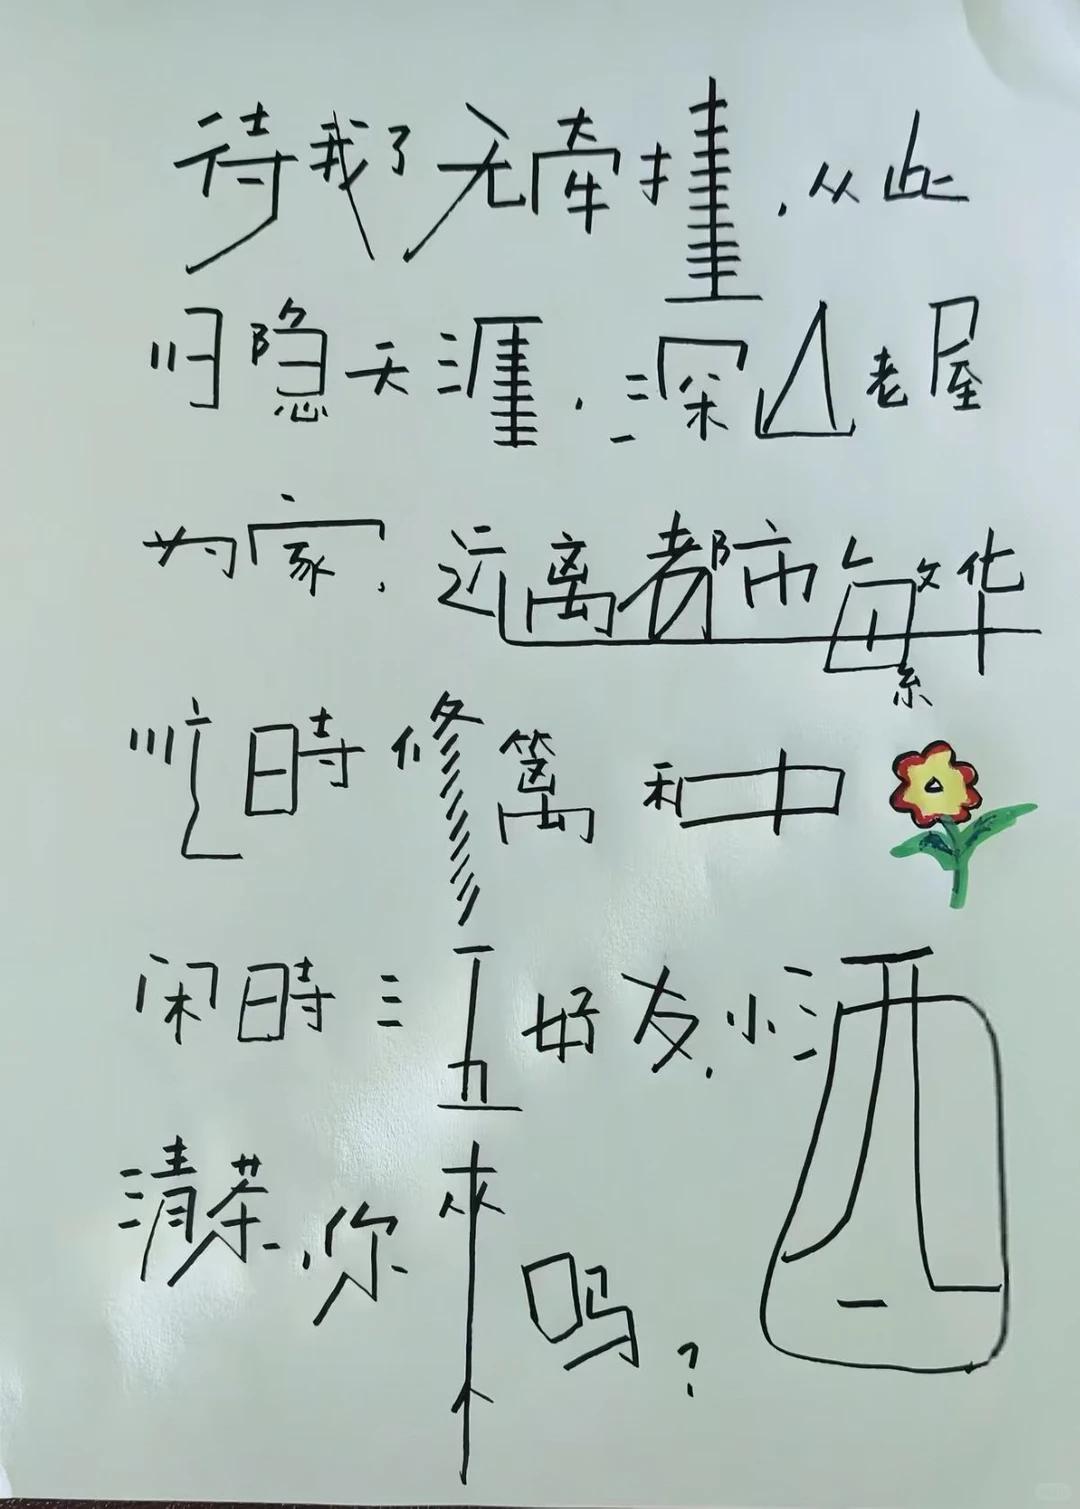 待我了无牵挂,从此
归隐天涯,深山老屋
为家,远离都市繁华
忙時修篱和种
闲時三五好友,小酒
清茶,你來吗?